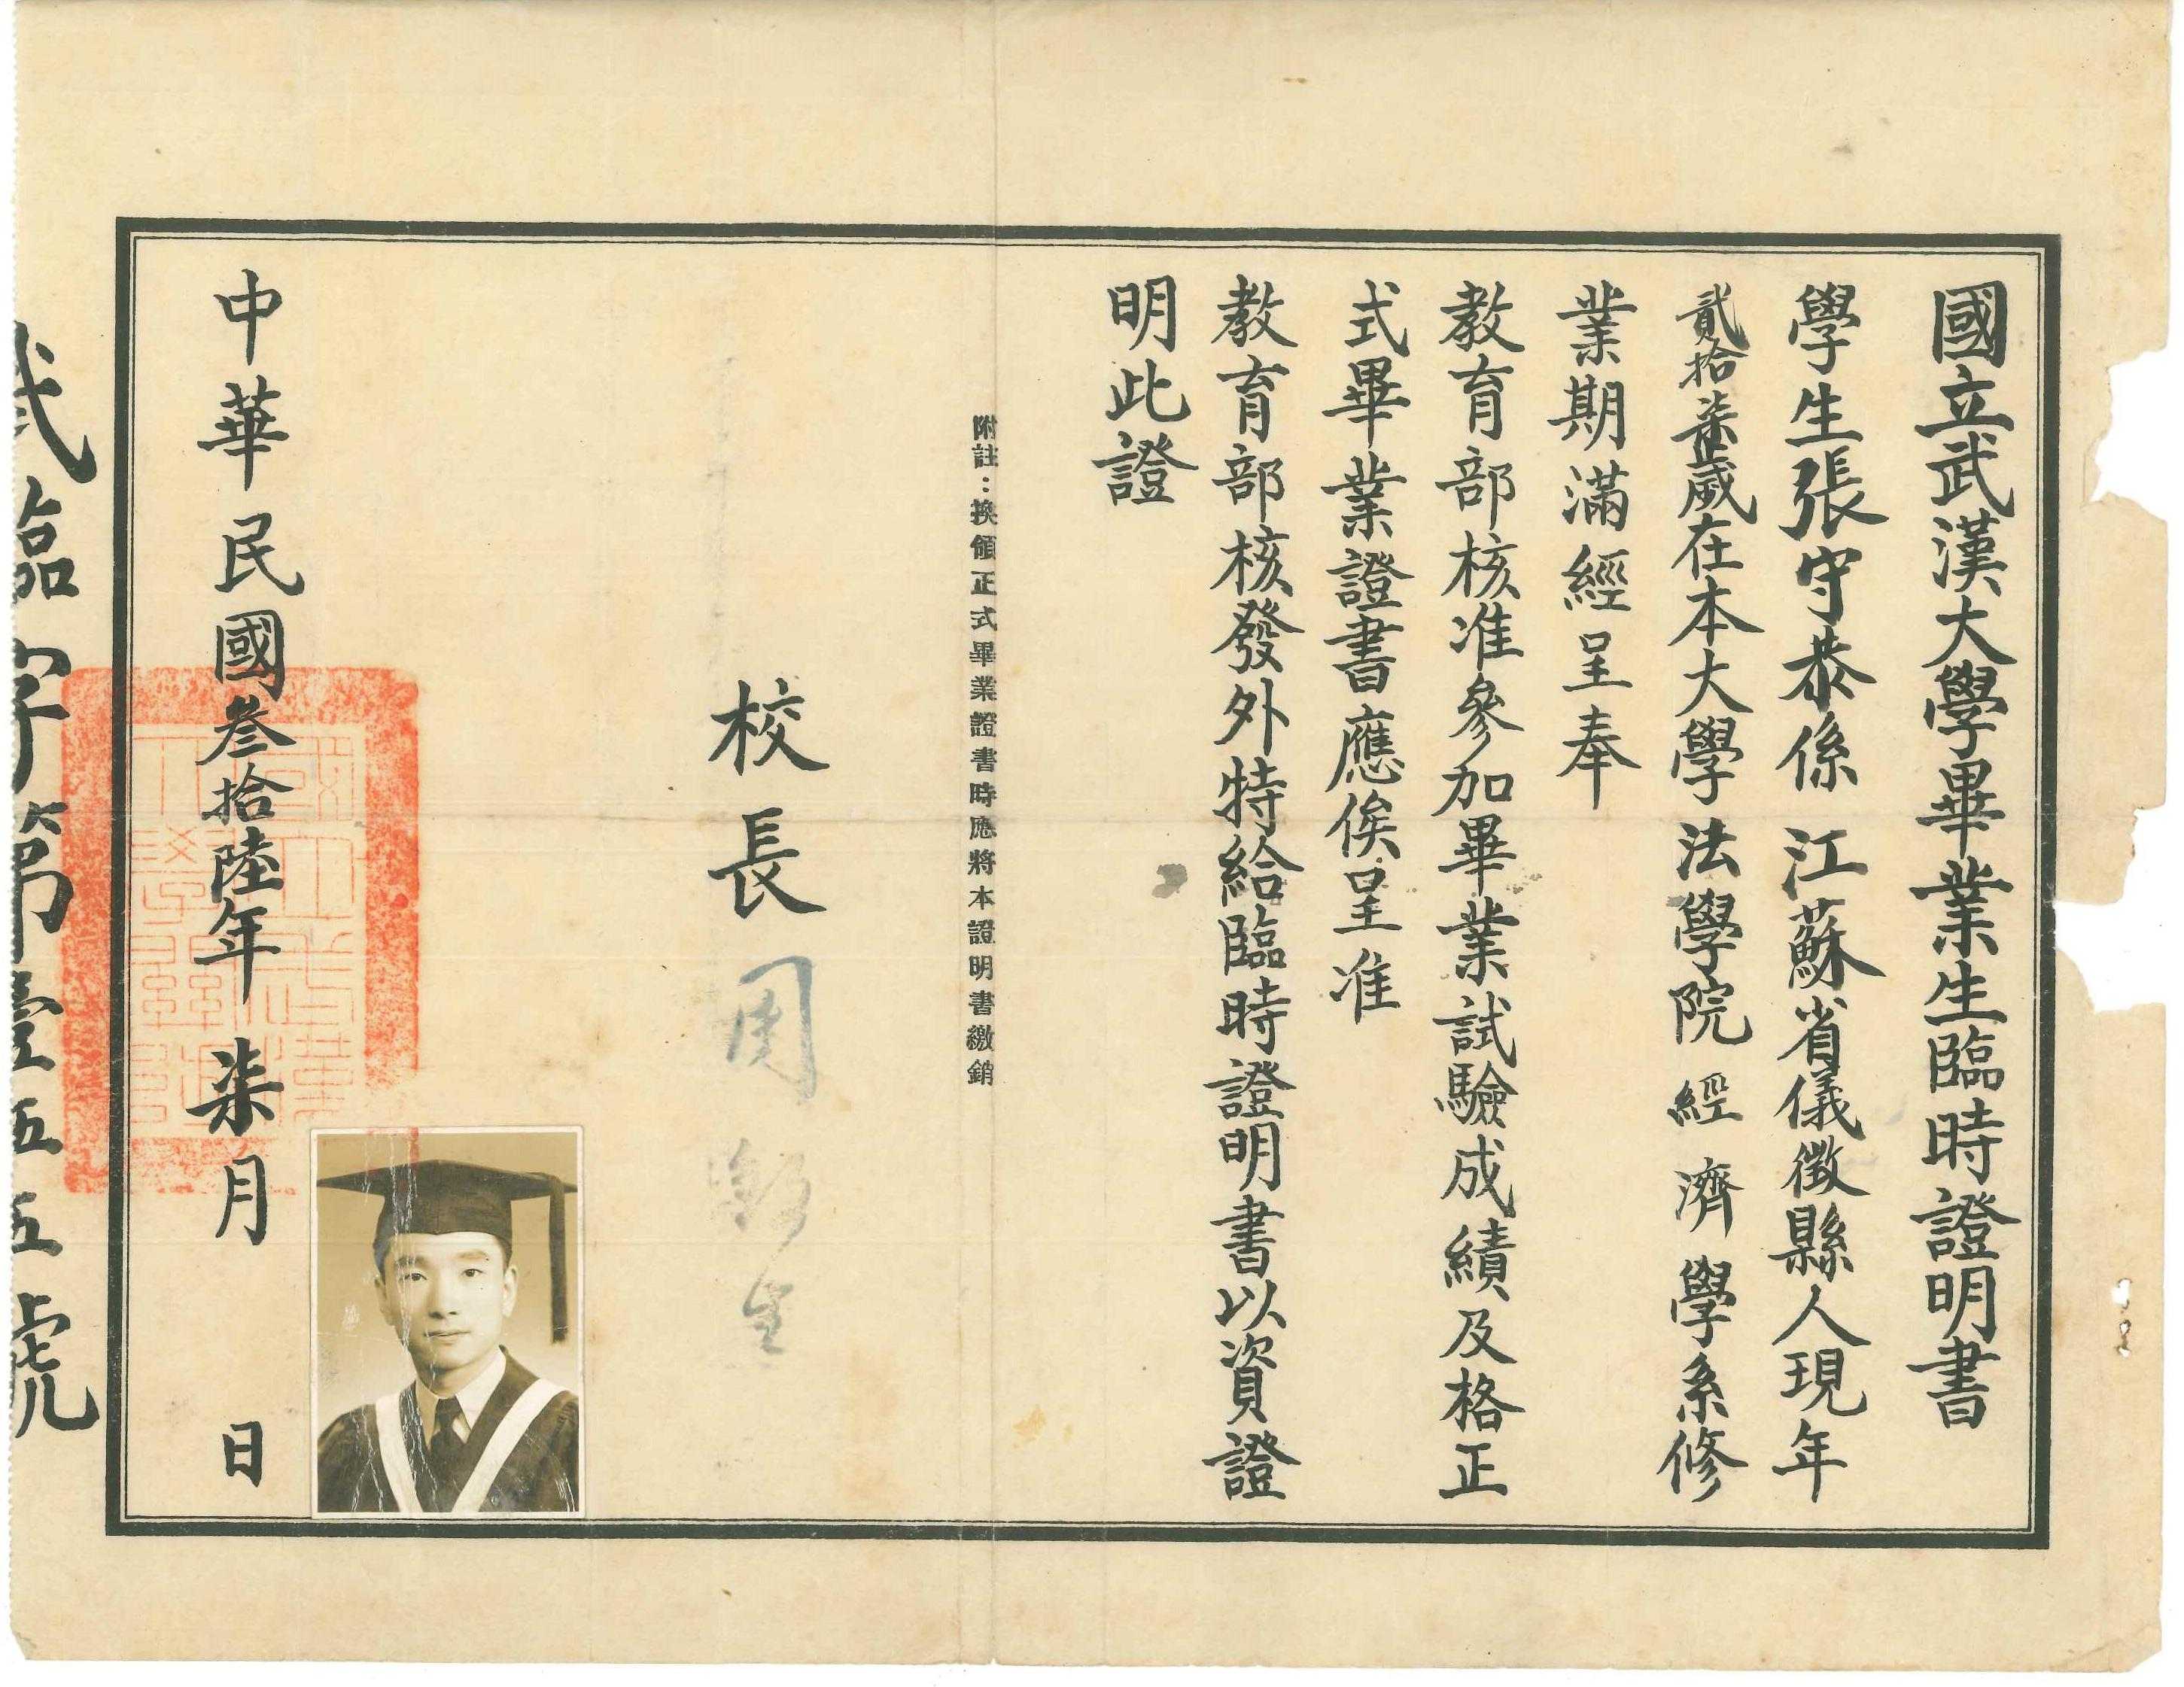 國立武漢大學畢業生臨時證明書
學生張守恭係江蘇省儀徵縣人現年
貳拾柒歲在本大學法學院經濟學系修
業期滿經呈奉
教育部核准參加畢業試驗成績及格正
式畢業證書應俟呈准
教育部核發外特給臨時證明書以資證
明此證
附註：換領正式畢業證書時應將本證明書繳銷
校長周鯁生
中華民國叁拾陸年柒月 日
武臨字第壹五五號